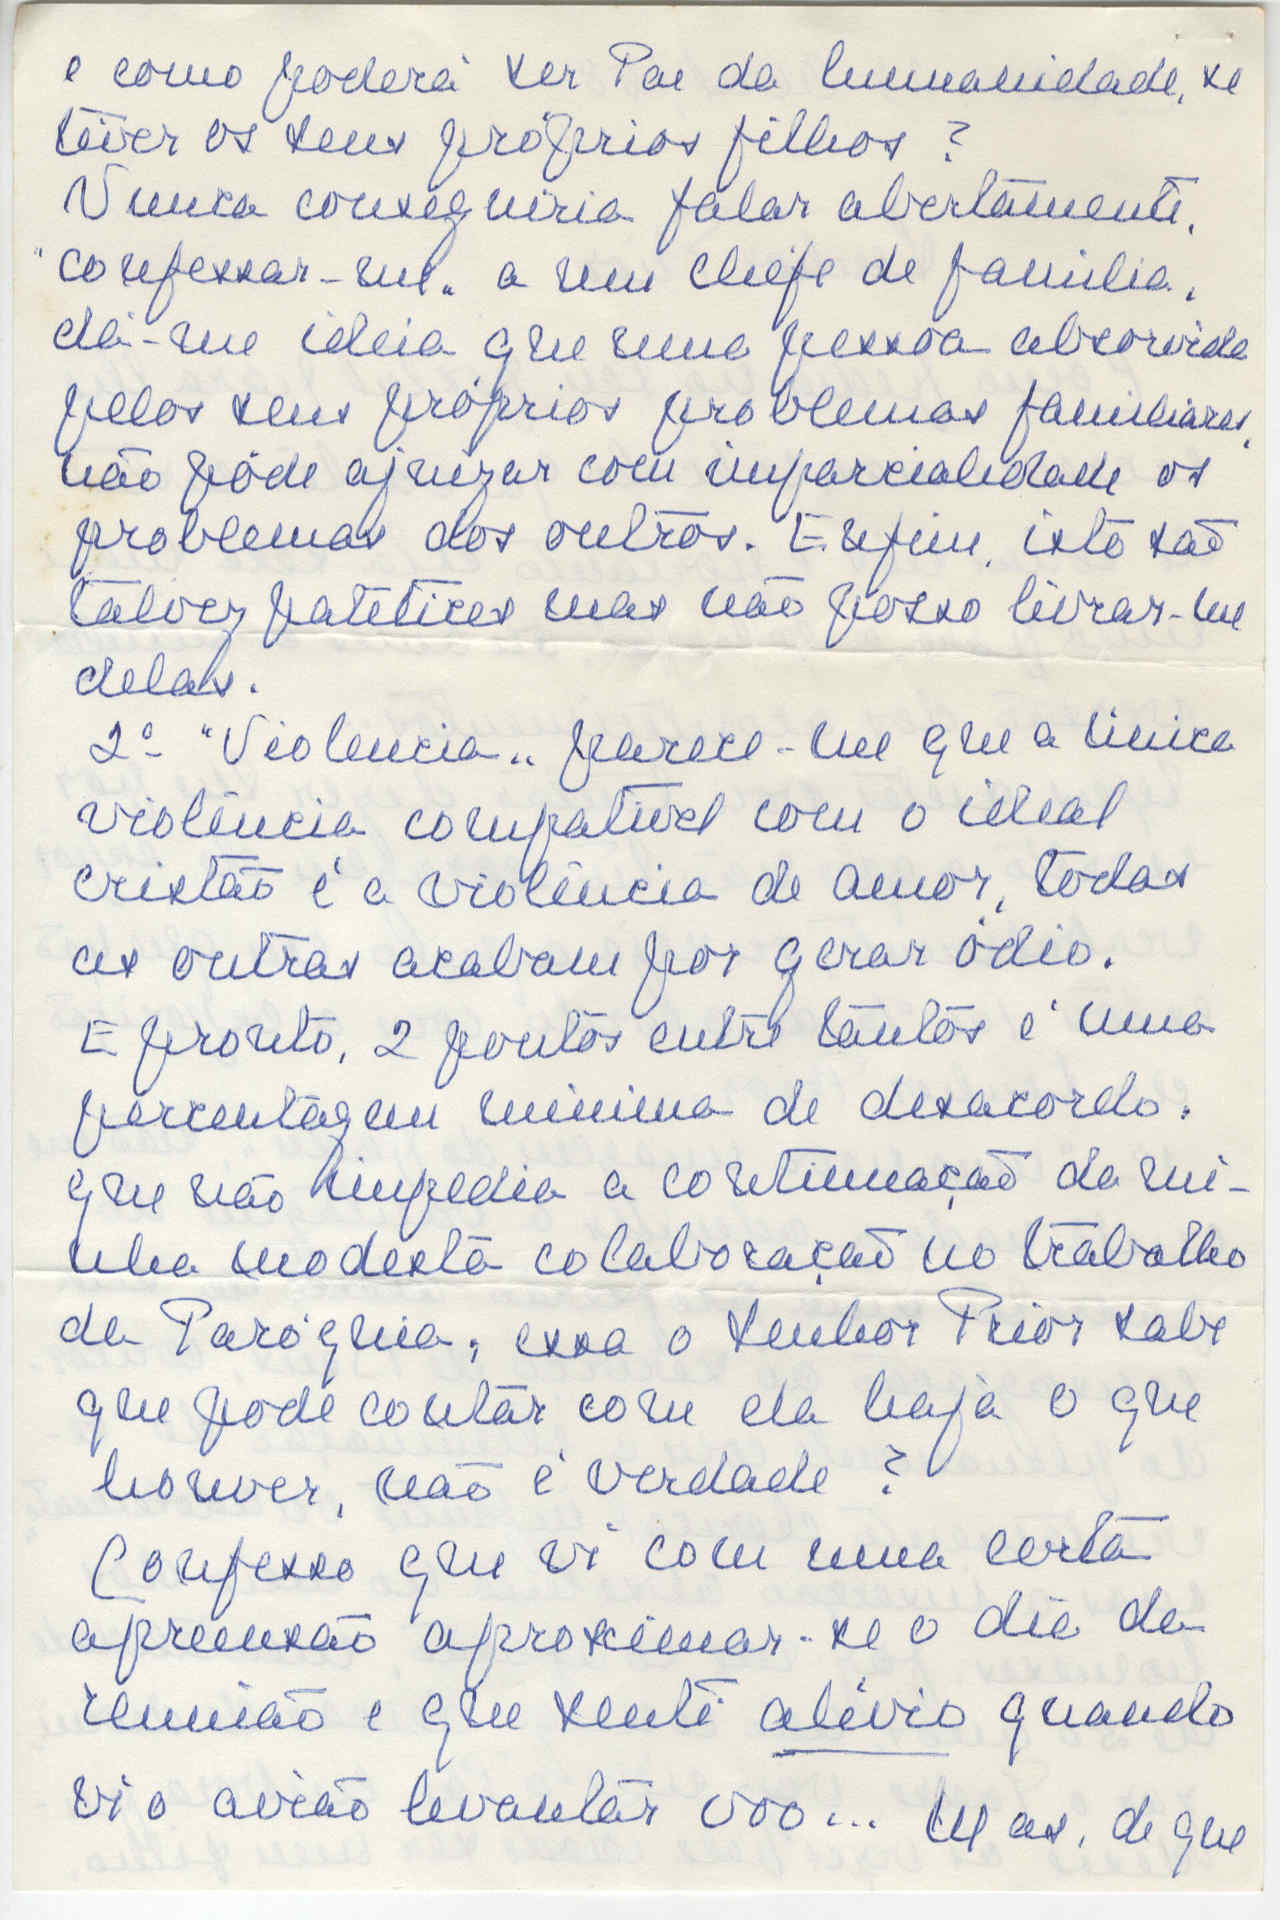 e como poderá ser Pai da humanidade, se
tiver os seus próprios filhos?
Nunca conseguiria falar abertamente,
"confessar-me" a um chefe de família,
dá-me ideia que uma pessoa absorvida
pelos seus próprios problemas familiares,
não póde ajuizar com imparcialidade os
problemas dos outros. Enfim, isto são
talvez patetices mas não posso livrar-me
delas.
2º- "Violencia" parece-me que a única
violência compatível com o ideal
cristão é a violência de amor, todas
as outras acabam por gerar ódio.
E pronto, 2 pontos entre tantos é uma
percentagem minima de desacordo,
que não impedia a continuação da mi-
nha modesta colaboração no trabalho
da Paróquia; essa o Senhor Prior sabe
que pode contar com ela haja o que
houver, não é verdade?
Confesso que vi com uma certa
apreensão aproximar-se o dia da
reunião e que senti alívio quando
vi o avião levantar voo... Mas, de que